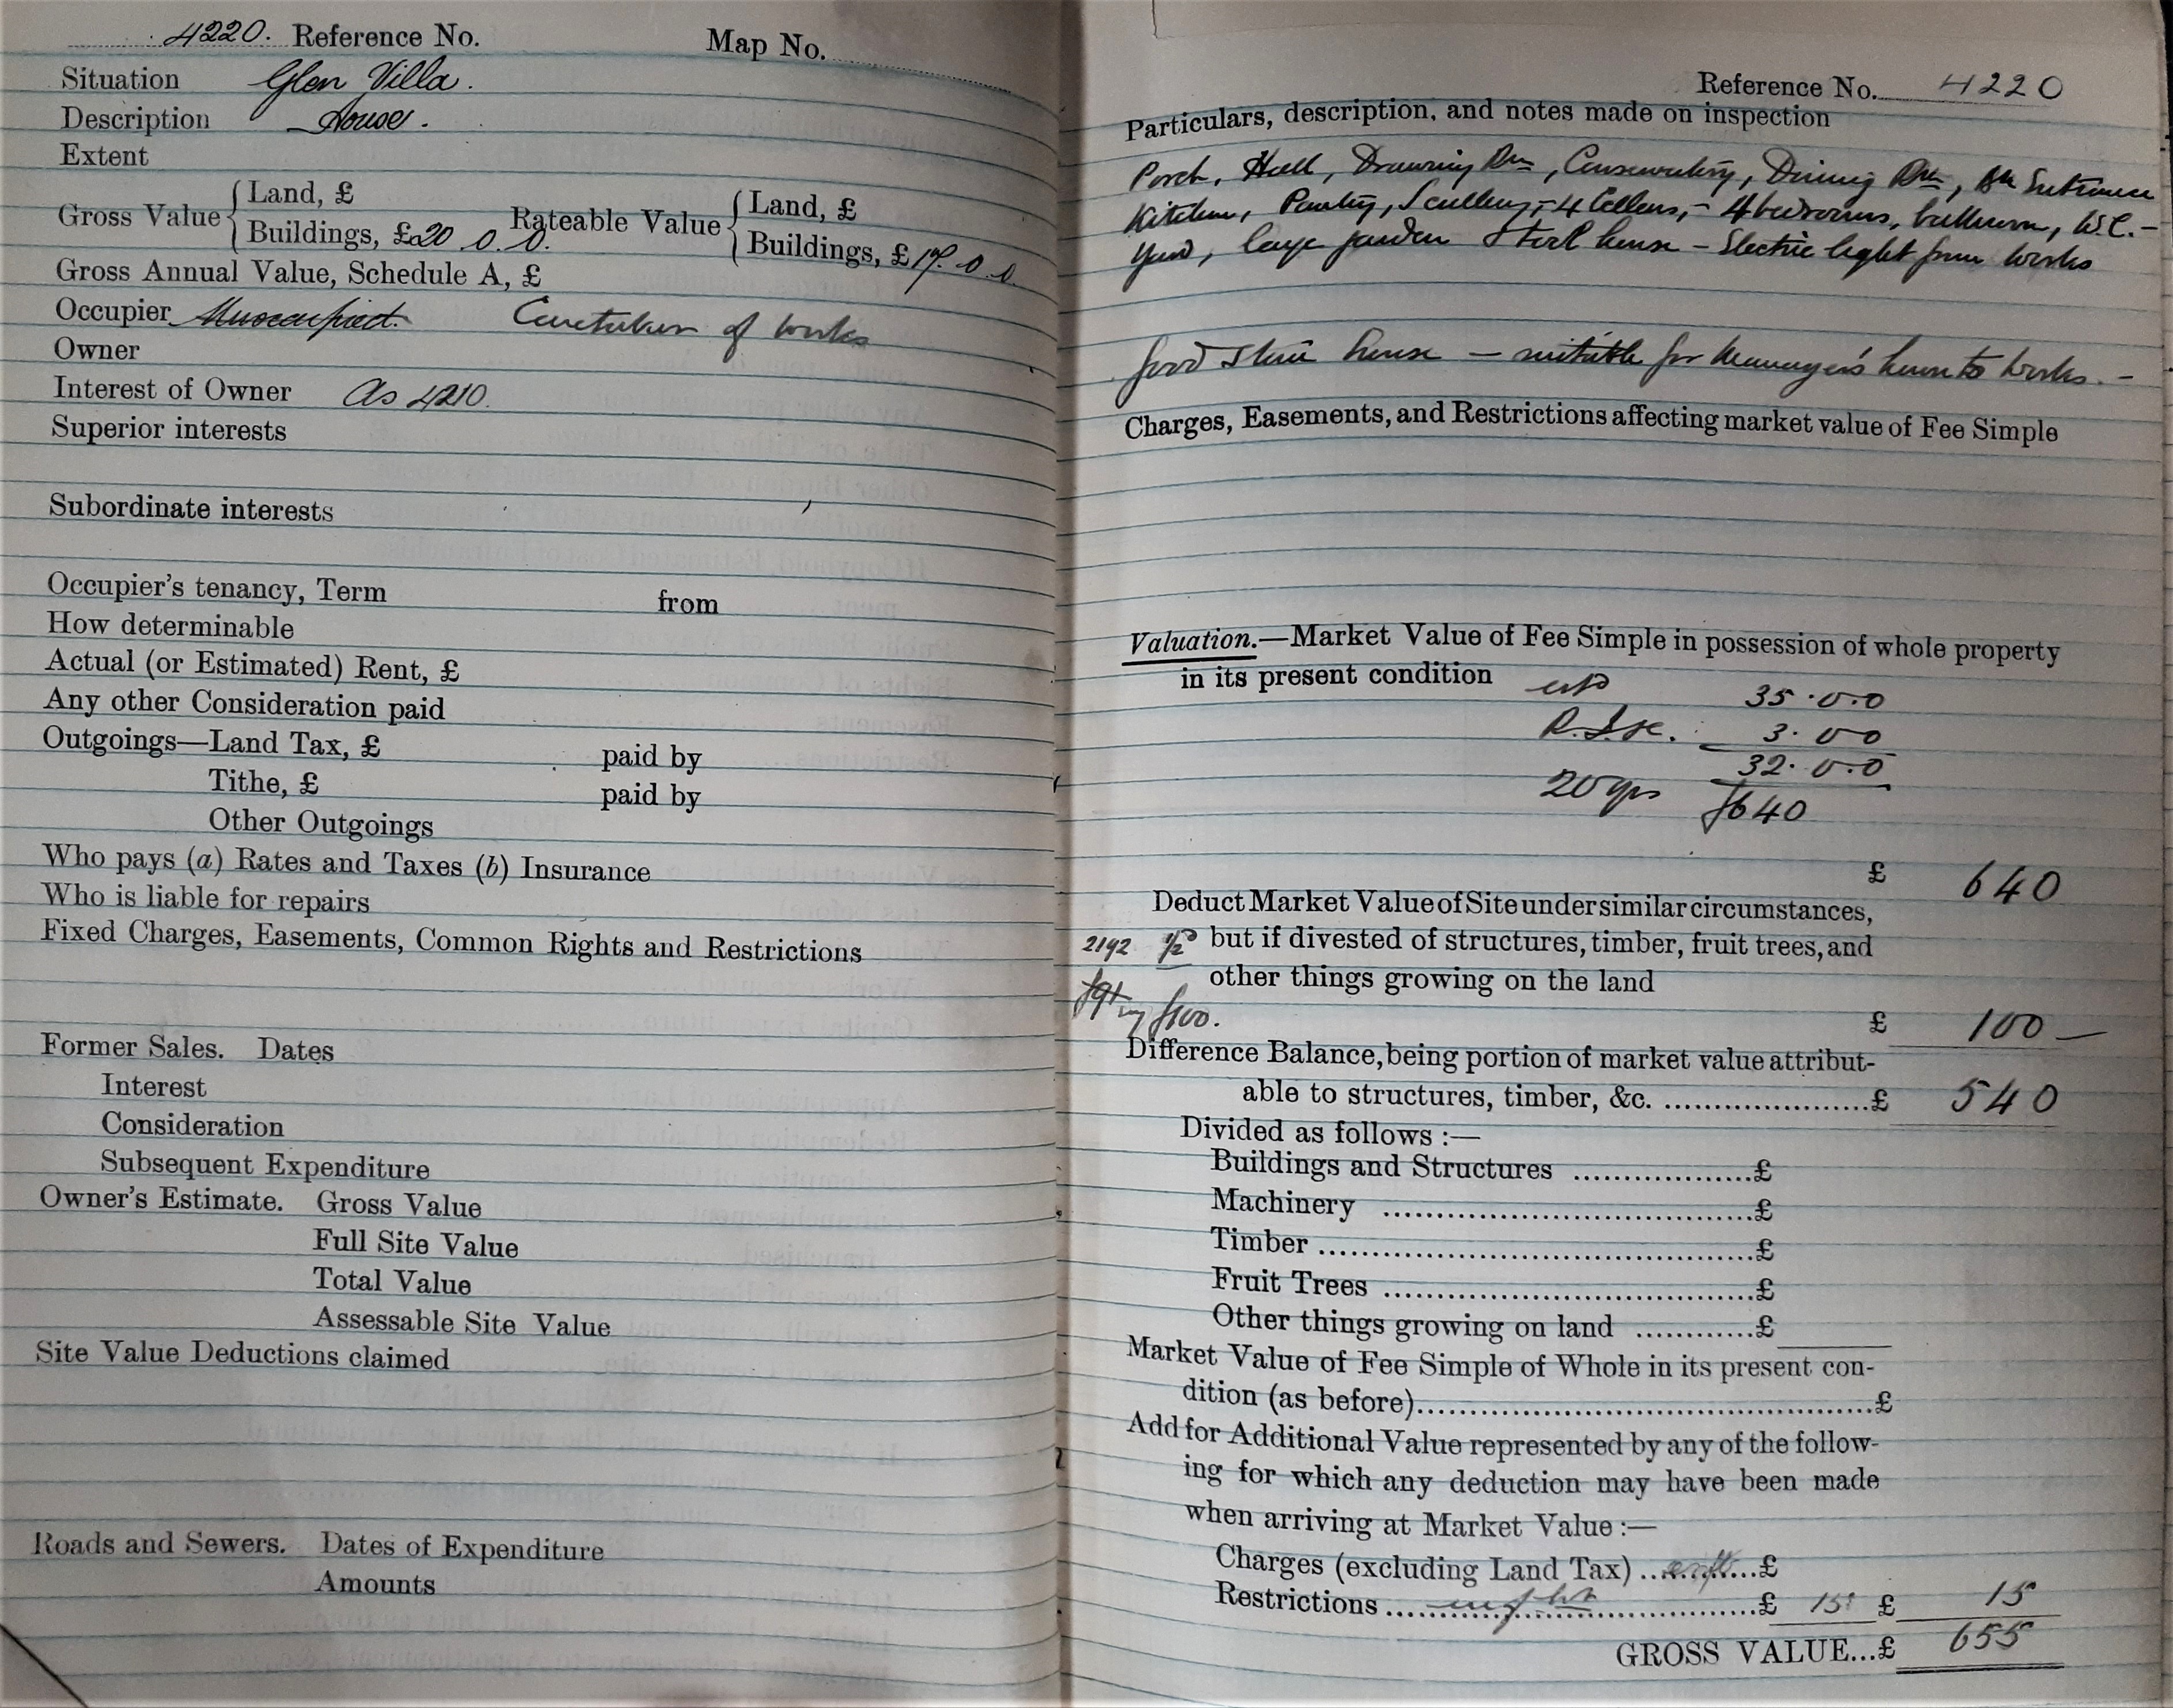 4220. Reference No. Map No.
Situation Glen Villa.
Description House.
Extent
Gross Value { Land, £ Rateable Value { Land, £
Buildings, £20 . 0 . 0. Buildings, £17 . 0 . 0.
Gross Annual Value, Schedule A, £
Occupier Unoccupied. Caretaker of works
Owner
Interest of Owner As 4210.
Superior interests
Subordinate interests
Occupier's tenancy, Term from
How determinable
Actual (or Estimated) Rent, £
Any other Consideration paid
Outgoings—Land Tax, £ paid by
Tithe, £ paid by
Other Outgoings
Who pays (a) Rates and Taxes (b) Insurance
Who is liable for repairs
Fixed Charges, Easements, Common Rights and Restrictions
Former Sales. Dates
Interest
Consideration
Subsequent Expenditure
Owner's Estimate. Gross Value
Full Site Value
Total Value
Assessable Site Value
Site Value Deductions claimed
Roads and Sewers. Dates of Expenditure
Amounts
Reference No. 4220
Particulars, description, and notes made on inspection
Porch, Hall, Drawing Rm, Conservatory, Dining Rm, Entrance
Kitchen, Pantry, Scullery, – 4 Cellars, – 4 bedrooms, bathroom, W.C. –
Yard, large garden & tool house – Electric light from works
Good stone house – suitable for Manager's house to works. –
Charges, Easements, and Restrictions affecting market value of Fee Simple
Valuation.—Market Value of Fee Simple in possession of whole property
in its present condition 35 . 0 . 0
3 . 0 0
32 . 0 . 0
20 yrs £640
£ 640
Deduct Market Value of Site under similar circumstances,
2192 1/2 but if divested of structures, timber, fruit trees, and
other things growing on the land
£91 say £100.
£ 100 –
Difference Balance, being portion of market value attribut-
able to structures, timber, &c. ........................£ 540
Divided as follows :—
Buildings and Structures ....................£
Machinery ........................................£
Timber ...............................................£
Fruit Trees ........................................£
Other things growing on land ............£
Market Value of Fee Simple of Whole in its present con-
dition (as before)..................................................£
Add for Additional Value represented by any of the follow-
ing for which any deduction may have been made
when arriving at Market Value :—
Charges (excluding Land Tax) ............£
Restrictions ........................................£ 15 £ 15
GROSS VALUE...£ 655